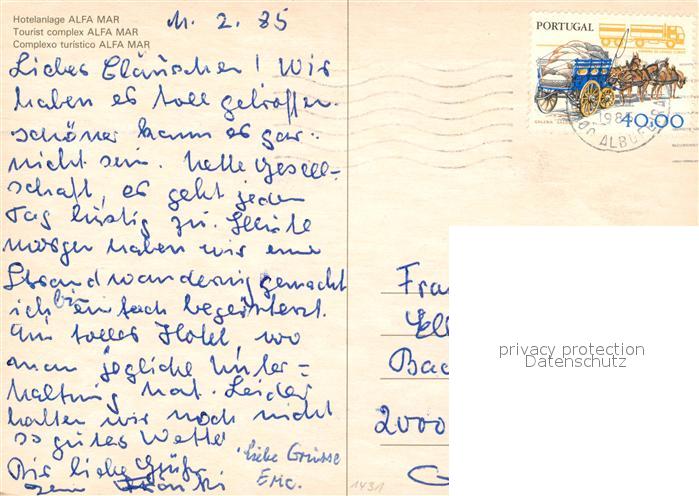 Hotelanlage ALFA MAR
Tourist complex ALFA MAR
Complexo turístico ALFA MAR
11. 2. 85
Liebes Cläuschen! Wir
haben es toll getroffen.
schöner kann es gar
nicht sein. Nette Gesell-
schaft, es geht jeden
Tag lustig zu. Heute
morgen haben wir eine
Strandwanderung gemacht
ich bin einfach begeistert.
Ein tolles Hotel, wo
man jegliche Unter-
haltung hat. Leider
hatten wir noch nicht
so gutes Wetter
Dir liebe Grüße
Liebe Grüsse
Eric.
PORTUGAL
40,00
198
ALBUFEIRA
Frau
Bad
2000
1431
privacy protection
Datenschutz